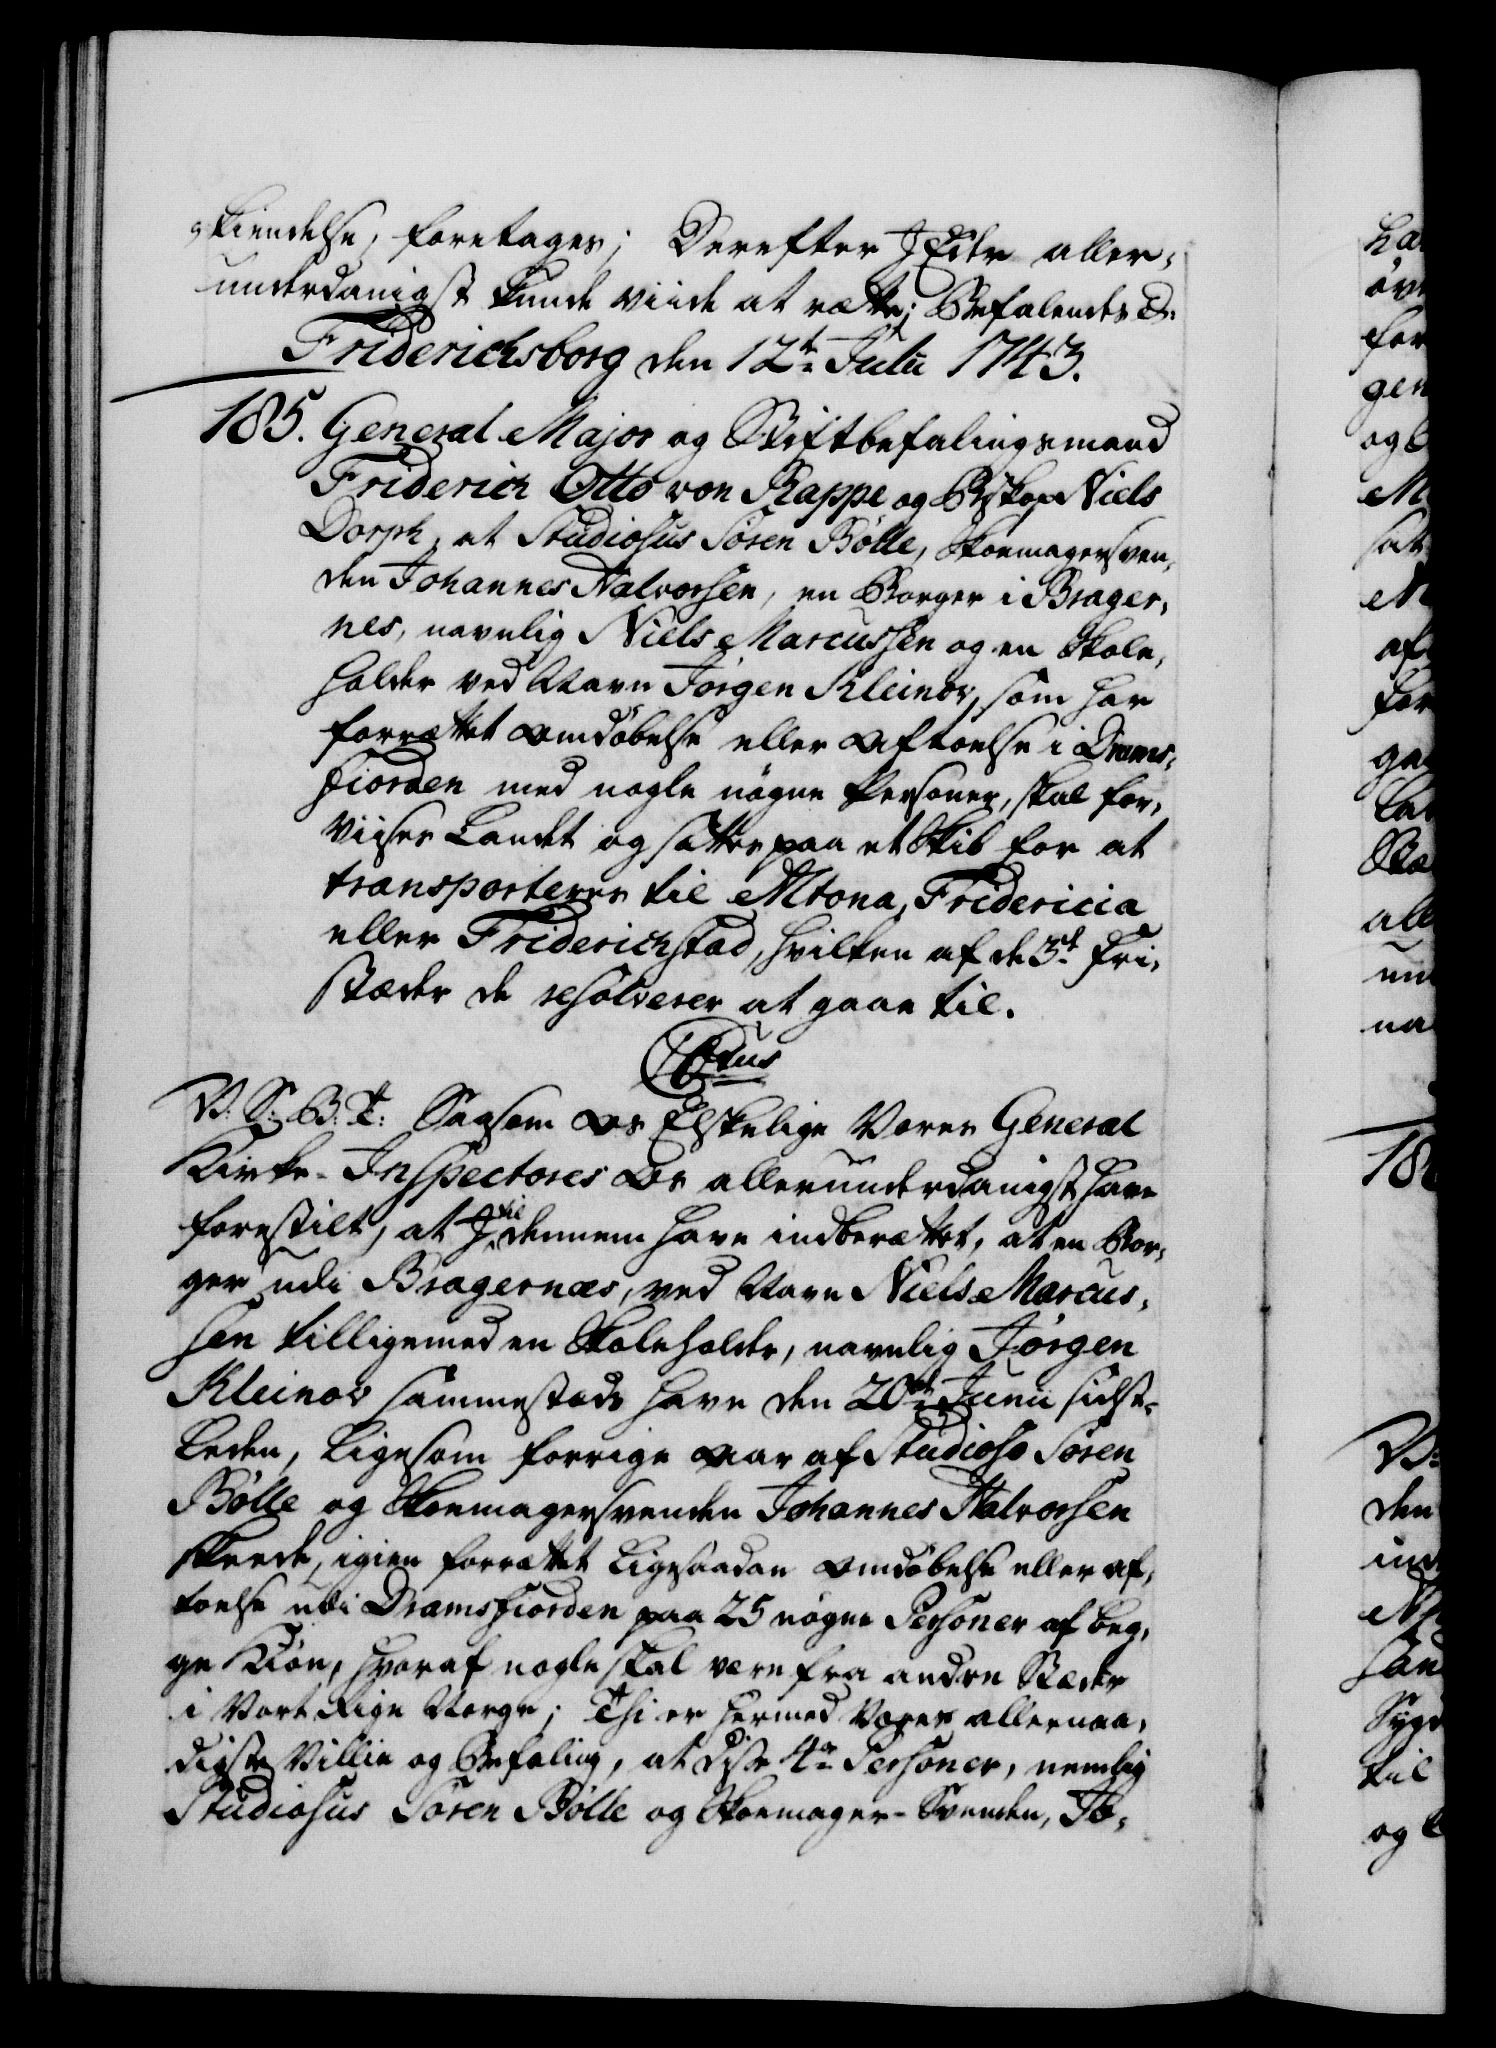 kiendelse, foretages; Derefter I Eder aller-
underdanigst kunde viide at rætte; Befalendes Eder
Friderichsborg den 12te Julii 1743.
185. General Major og Stiftbefalingsmand
Friderich Otto von Rappe og Biskop Niels
Dorph, at Studiosus Søren Bølle, Skoemagersven-
den Johannes Halvorsen, en Borger i Brager-
nes, navnlig Niels Marcussen og en Skole-
holder ved Navn Jørgen Kleinov, som har
forrættet omdøbelse eller Aftoelse i Drams-
fiorden med nogle nøgne Personer, skal for-
viises Landet og sættes paa et Skib for at
transporteres til Altona, Fridericia
eller Friderichstad, hvilken af de 3de fri-
stæder de resolverer at gaae til.
C6tus
V: S: G: T: Saasom Os Elskelige Vores General
Kirke-Inspectores Os allerunderdanigst have
forestilt, at I til dennem have indberættet, at en Bor-
ger udi Bragernæs, ved Navn Niels Marcus-
sen tilligemed en Skoleholder, navnlig Jørgen
Kleinov sammesteds have den 20de Junii sidst-
leden, ligesom forrige Aar af Studioso Søren
Bølle og Skoemagersvenden Johannes Halvorsen
skeede, igien forrættet ligesaadan omdøbelse eller af-
toelse udi Dramsfiorden paa 25 nøgne Personer af beg-
ge Kiøn, hvoraf nogle skal være fra andre Stæder
i Vort Rige Norge; Thi er hermed Vores allernaa-
digste Villie og Befaling, at disse 4re Personer, nemlig
Studiosus Søren Bølle og Skoemager-Svenden, Jo-